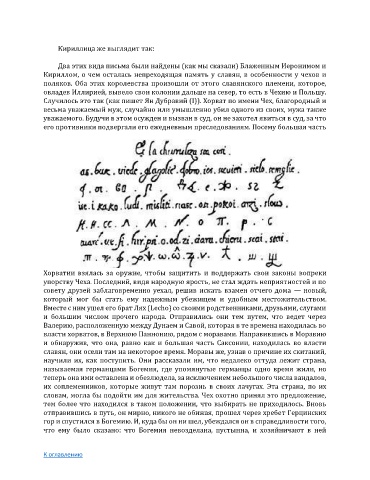 Кириллица же выглядит так:
Два этих вида письма были найдены (как мы сказали) Блаженным Иеронимом и
Кириллом, о чем осталась невреходящая память у славян, в особенности у чехов и
поляков. Оба этих королевства произошли от этого славянского племени, которое,
овладев Иллирией, вывело свои колонии дальше на север, то есть в Чехию и Польшу.
Случилось это так (как пишет Ян Дубравий (I)). Хорват по имени Чех, благородный и
весьма уважаемый муж, случайно или умышленно убил одного из своих, мужа также
уважаемого. Будучи в этом осужден и вызван в суд, он не захотел явиться в суд, за что
его противники подвергали его ежедневным преследованиям. Посему большая часть
Хорватии взялась за оружие, чтобы защитить и поддержать свои законы вопреки
упорству Чеха. Последний, видя народную ярость, не стал ждать неприятностей и по
совету друзей заблаговременно уехал, решив искать взамен отчего дома — новый,
который мог бы стать ему надежным убежищем и удобным местожительством.
Вместе с ним ушел его брат Лях (Lecho) со своими родственниками, друзьями, слугами
и большим числом прочего народа. Отправились они тем путем, что ведет через
Валерию, расположенную между Дунаем и Савой, которая в те времена находилась во
власти хорватов, в Верхнюю Паннонию, рядом с моравами. Направившись в Моравию
и обнаружив, что она, равно как и большая часть Саксонии, находилась во власти
славян, они осели там на некоторое время. Моравы же, узнав о причине их скитаний,
научили их, как поступить. Они рассказали им, что недалеко оттуда лежит страна,
называемая германцами Богемия, где упомянутые германцы одно время жили, но
теперь она ими оставлена и обезлюдела, за исключением небольшого числа вандалов,
их современников, которые живут там порознь в своих лачугах. Эта страна, по их
словам, могла бы подойти им для жительства. Чех охотно принял это предложение,
тем более что находился в таком положении, что выбирать не приходилось. Вновь
отправившись в путь, он мирно, никого не обижая, прошел через хребет Герцинских
гор и спустился в Богемию. И, куда бы он ни шел, убеждался он в справедливости того,
что ему было сказано: что Богемия невозделана, пустынна, и хозяйничают в ней
К оглавлению